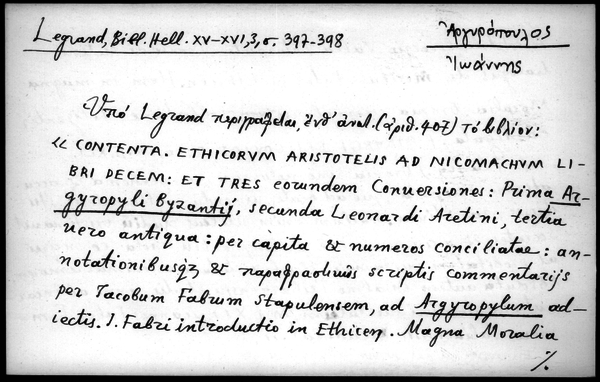 Legrand, Bibl. Hell. XV-XVI, 3, σ. 397-398
Ἀργυρόπουλος
Ἰωάννης
Ὑπό Legrand περιγράφεται, ἐνθ' ἀνωτ. (ἀριθ. 407) τό βιβλίον:
« CONTENTA. ETHICORVM ARISTOTELIS AD NICOMACHVM LI-
BRI DECEM: ET TRES eorundem Conuersiones: Prima Ar-
gyropyli Byzantij, secunda Leonardi Aretini, tertia
uero antiqua: per capita & numeros conciliatae: an-
notationibusqz & παραφραστικῶς scriptis commentarijs
per Iacobum Fabrum Stapulensem, ad Argyropylum ad-
iectis. I. Fabri introductio in Ethicen. Magna Moralia
%.